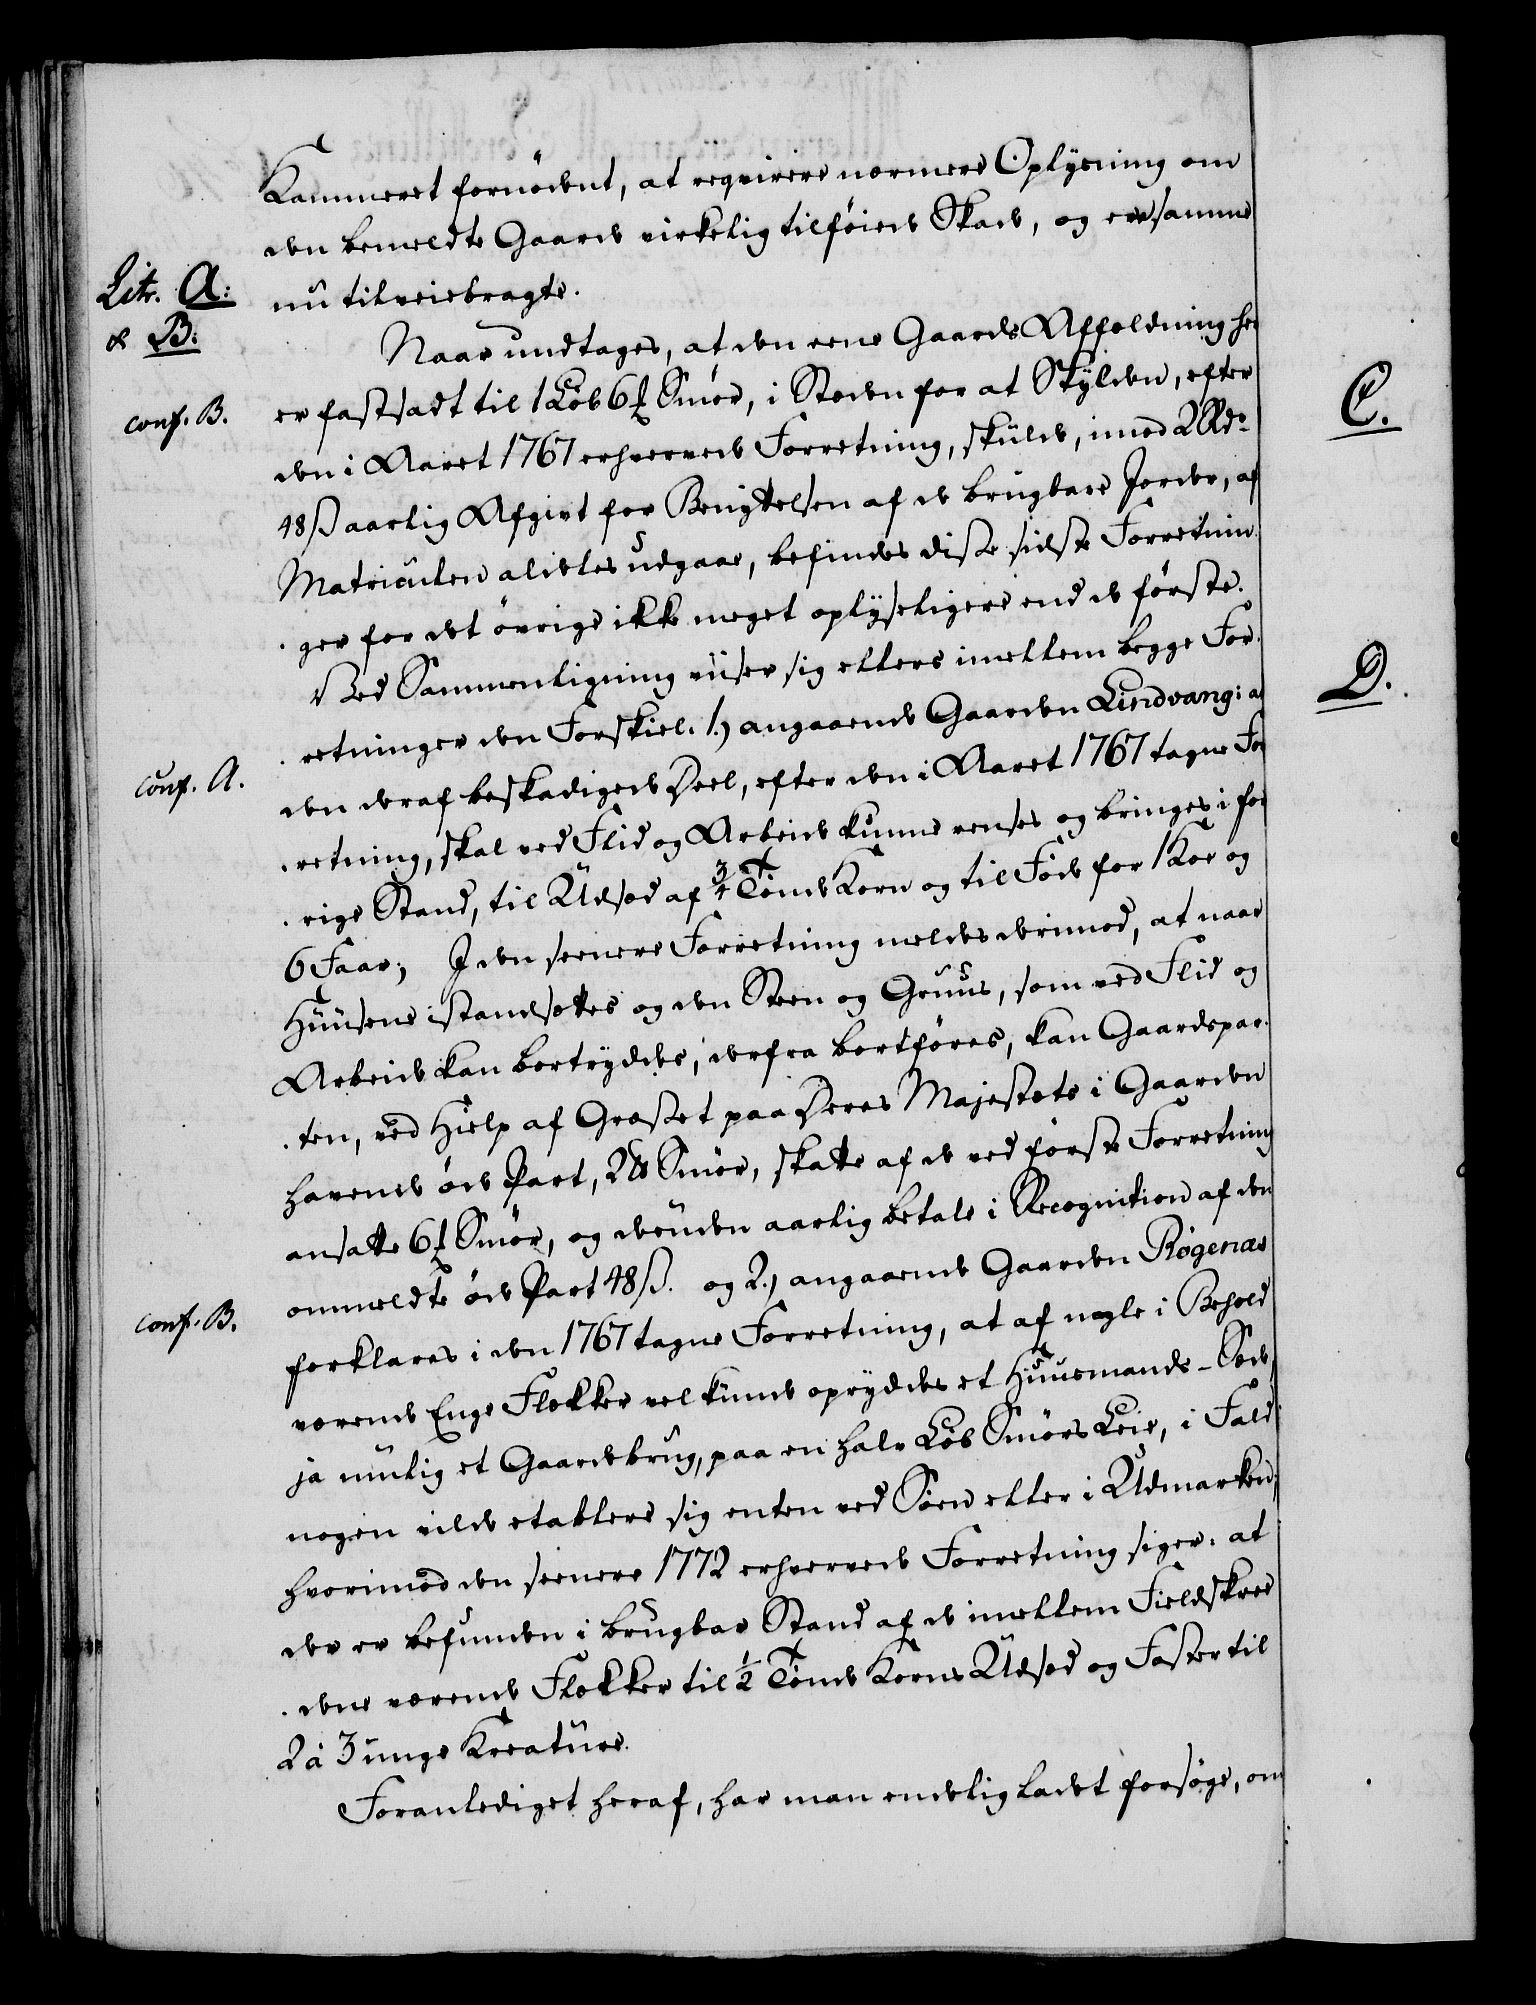 Kammeret fornødent, at reqvirere nærmere Oplysning om
den bemeldte Gaarde virkelig tilføiede Skade, og ere samme
Litr. A:
& B:
nu tilveiebragte.
Naar undtages, at den eene Gaards Affældning her
conf. B.
er fastsadt til 1 Løb 6 # Smør, i Steden for at Skylden, efter
C.
den i Aaret 1767 erhvervede Forretning, skulde, imod 2 Rdr
48 ß aarlig Afgivt for Benyttelsen af de brugbare Jorder, af
Matriculen aldeles udgaae, befindes disse sidste Forretnin-
ger for det øvrige ikke meget oplyseligere end de første.
Ved Sammenligning viiser sig ellers imellem begge For-
D.
retninger den Forskiel: 1.) angaaende Gaarden Lindvang: at
conf. A.
den deraf beskadigede Deel, efter den i Aaret 1767 tagne For-
retning, skal ved Flid og Arbeide kunne renses og bringes i for-
rige Stand, til Udsæd af 3/4 Tønde Korn og til Føde for 1 Koe og
6 Faar; I den seenere Forretning meldes derimod, at naar
Huusene istandsættes og den Steen og Gruus, som ved Flid og
Arbeide kan bortryddes, derfra bortføres, kan Gaardspar-
ten, ved Hielp af Græsset paa Deres Majestæts i Gaarden
havende øde Part, 2 # Smør, skatte af de ved første Forretning
ansatte 6 # Smør, og desuden aarlig betale i Recognition af den
ommeldte øde Part 48 ß. og 2.) angaaende Gaarden Røgenæs
conf. B.
forklares i den 1767 tagne Forretning, at af nogle i Behold
værende Enge Flekker vel kunde opryddes et Huusmands-Sæde,
ja muelig et Gaardebrug, paa en halv Løb Smørs Leie, i Fald
nogen vilde etablere sig enten ved Søen eller i Udmarken;
hvorimod den seenere 1772 erhvervede Forretning siger: at
der er befunden i brugbar Stand af de imellem Fieldskree-
dene værende Flekker til 1/2 Tønde Korns Udsæd og Foster til
2 à 3 unge Kreature.
Foranlediget heraf, har man endelig ladet forsøge, om